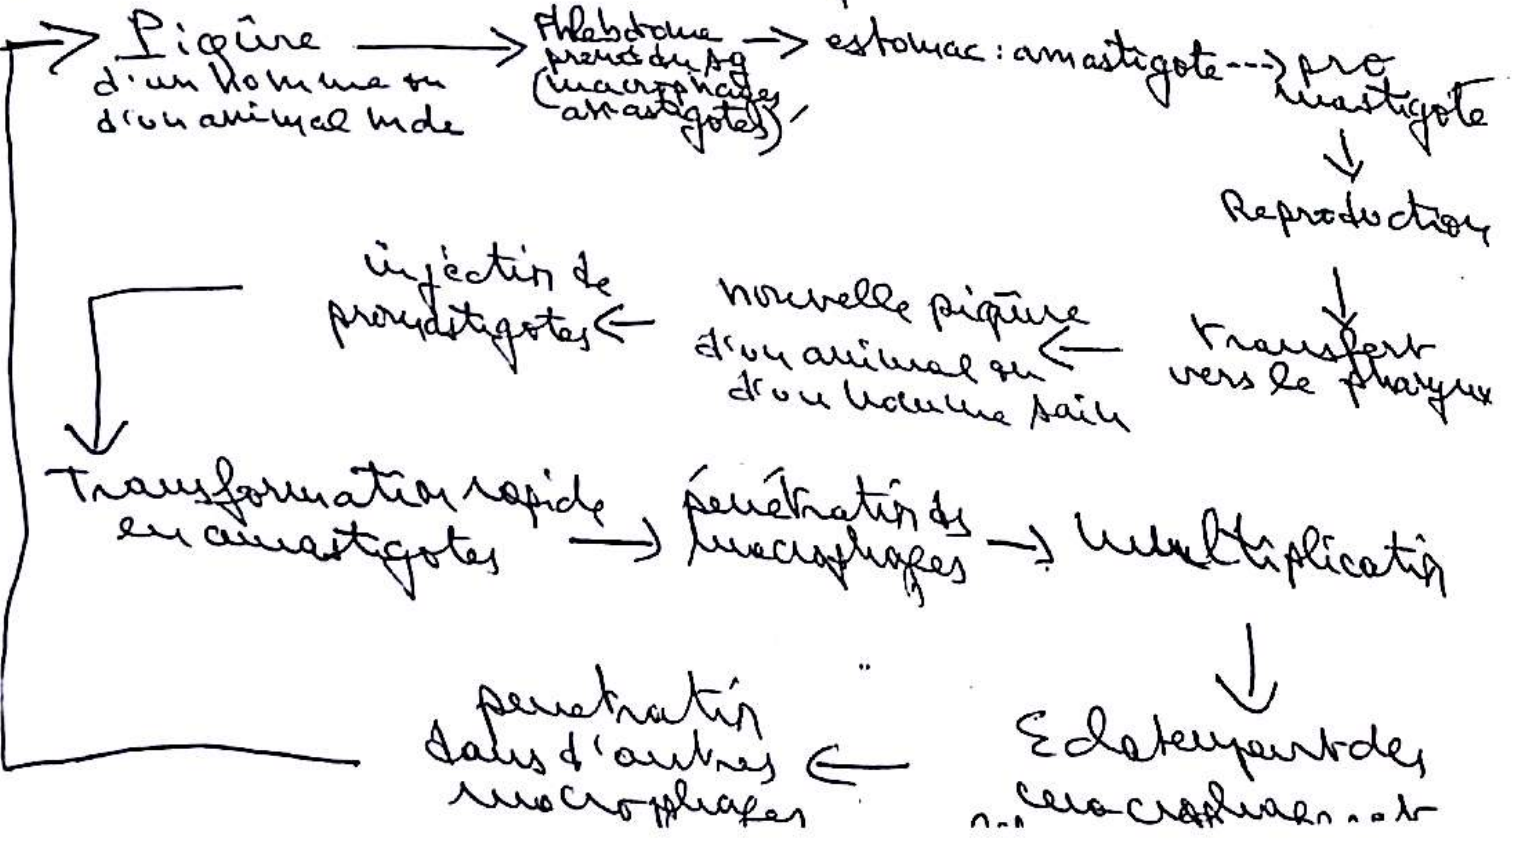 Piqûre
d'un homme ou
d'un animal mde
Phlebotome
prend du sg
(macrophages
amastigotes)
estomac : amastigote ---> pro
mastigote
Reproduction
transfert
vers le pharynx
nouvelle piqûre
d'un animal ou
d'un homme sain
injection de
promastigotes
Transformation rapide
en amastigotes
pénétration ds
macrophages
multiplication
Eclatement des
macrophages
penetration
dans d'autres
macrophages